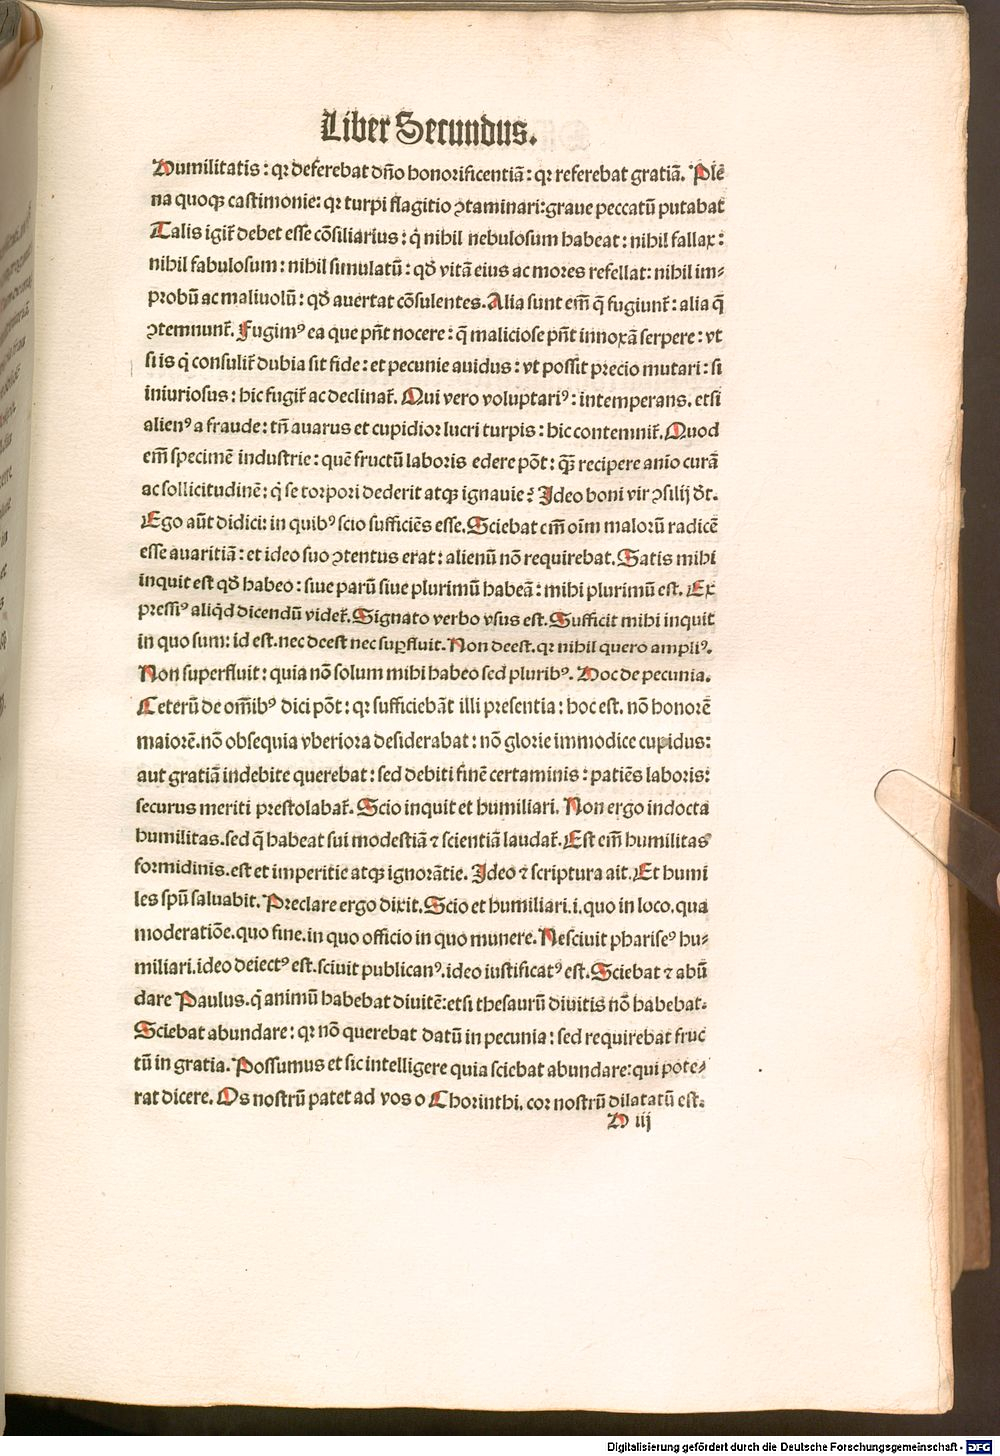 Liber Secundus.
Humilitatis: qꝛ deferebat dño honorificentiā: qꝛ referebat gratiā. Plē
na quoqꝫ castimonie: qꝛ turpi flagitio ꝯtaminari: graue peccatū putabat
Talis igiť debet esse cōsiliarius: q̇ nihil nebulosum habeat: nihil fallax:
nihil fabulosum: nihil simulatū: qđ vitā eius ac mores refellat: nihil im⸗
probū ac maliuolū: qđ auertat cōsulentes. Alia sunt em̄ q̄ fugiunť: alia q̄
ꝯtemnunť. Fugimꝰ ea que pn̄t nocere: q̄ maliciose pn̄t in noxā serpere: vt
si is q̇ consuliť dubia sit fide: et pecunie auidus: vt possit precio mutari: si
iniuriosus: hic fugiť ac declinať. Qui vero voluptariꝰ: intemperans. etsi
alienꝰ a fraude: tn̄ auarus et cupidior lucri turpis: hic contemniť. Quod
em̄ specimē industrie: quē fructū laboris edere pōt: quā recipere aīo curā
ac sollicitudinē: q̇ se torpori dederit atqꝫ ignauie? Ideo boni vir ꝯsilij dt.
Ego aūt didici: in quibꝰ scio sufficiēs esse. Sciebat em̄ oīm malorū radicē
esse auaritiā: et ideo suo ꝯtentus erat: alienū nō requirebat. Satis mihi
inquit est qđ habeo: siue parū siue plurimū habeā: mihi plurimū est. Ex
pressiꝰ aliq̇d dicendū videť. Signato verbo vsus est. Sufficit mihi inquit
in quo sum: id est. nec deest nec suꝑfluit. Non deest. qꝛ nihil quero ampliꝰ.
Non superfluit: quia nō solum mihi habeo sed pluribꝰ. Hoc de pecunia.
Ceterū de om̄ibꝰ dici pōt: qꝛ sufficiebāt illi presentia: hoc est. nō honorē
maiorē. nō obsequia vberiora desiderabat: nō glorie immodice cupidus:
aut gratiā indebite querebat: sed debiti finē certaminis: patiēs laboris:
securus meriti prestolabať. Scio inquit et humiliari. Non ergo indocta
humilitas. sed q̄ habeat sui modestiā ⁊ scientiā laudať. Est em̄ humilitas
formidinis. est et imperitie atqꝫ ignorātie. Ideo ⁊ scriptura ait. Et humi
les spū saluabit. Preclare ergo dixit. Scio et humiliari. i. quo in loco. qua
moderatiōe. quo fine. in quo officio in quo munere. Nesciuit phariseꝰ hu⸗
miliari. ideo deiectꝰ est. sciuit publicanꝰ. ideo iustificatꝰ est. Sciebat ⁊ abū
dare Paulus. q̇ animū habebat diuitē: etsi thesaurū diuitis nō habebat.
Sciebat abundare: qꝛ nō querebat datū in pecunia: sed requirebat fruc
tū in gratia. Possumus et sic intelligere quia sciebat abundare: qui pote⸗
rat dicere. Os nostrū patet ad vos o Chorinthi. cor nostrū dilatatū est.
H iij
Digitalisierung gefördert durch die Deutsche Forschungsgemeinschaft - DFG